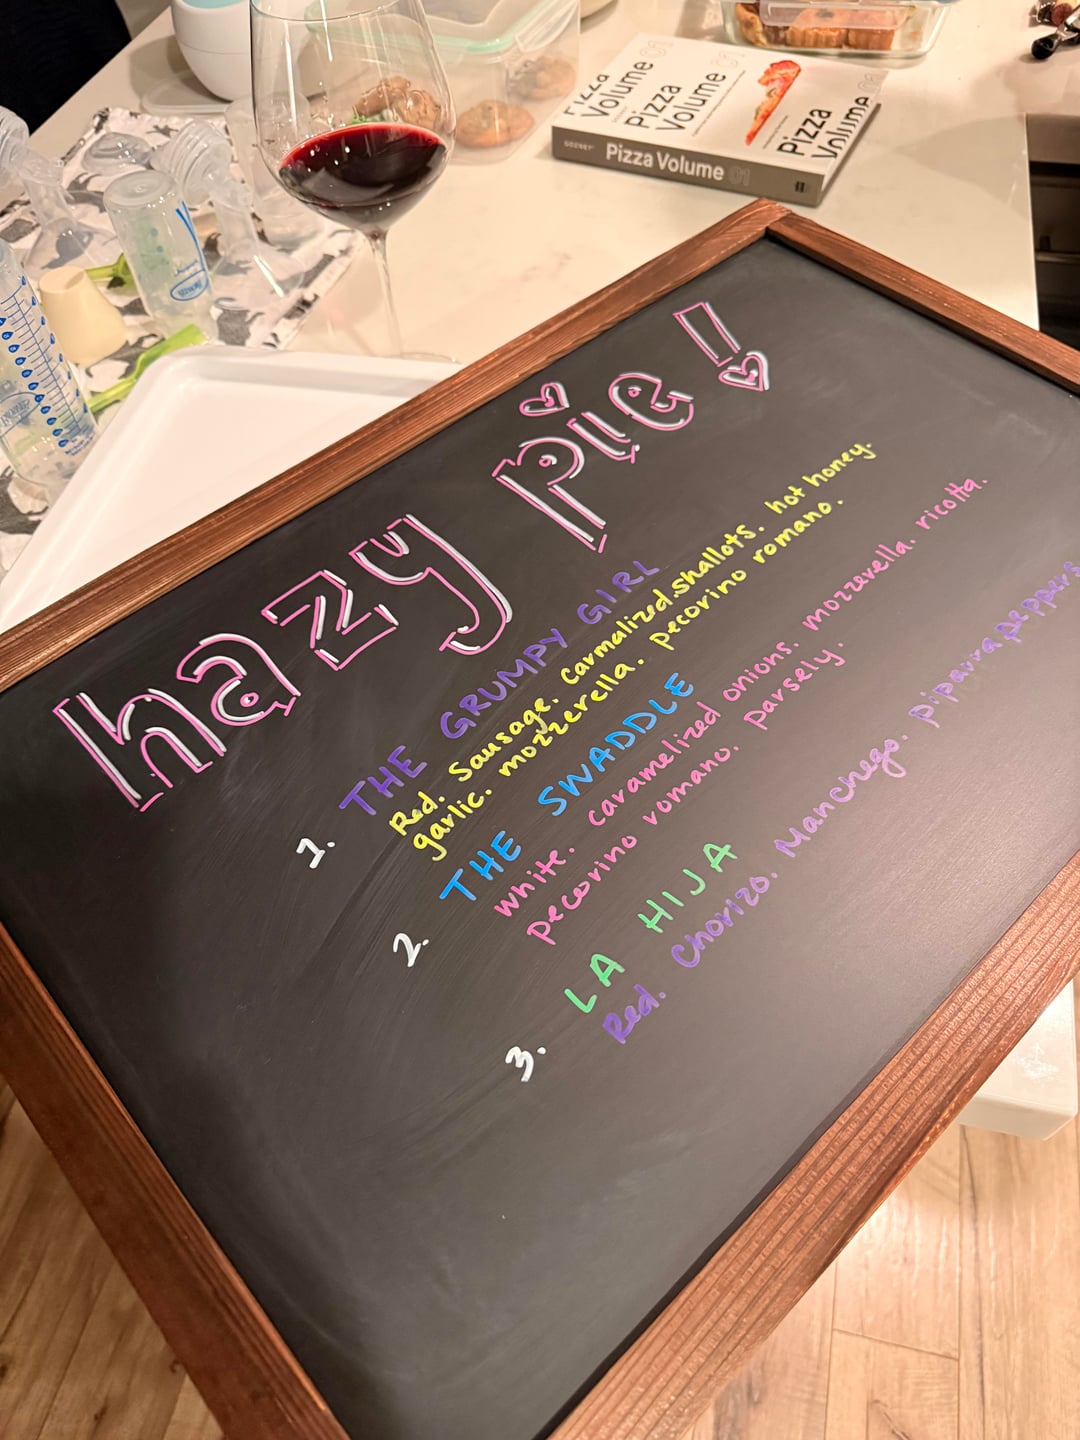 Pizza
Volume 01
Pizza
Volume 01
Pizza
Volume 01
GOZNEY
Pizza Volume 01
hazy pie!!
1. THE GRUMPY GIRL
Red. Sausage. Carmalized.shallots. hot honey.
garlic. mozzerella. pecorino romano.
2. THE SWADDLE
White. caramelized onions. mozzerella. ricotta.
pecorino romano. parsely.
3. LA HIJA
Red. Chorizo. Manchego. piparra peppers